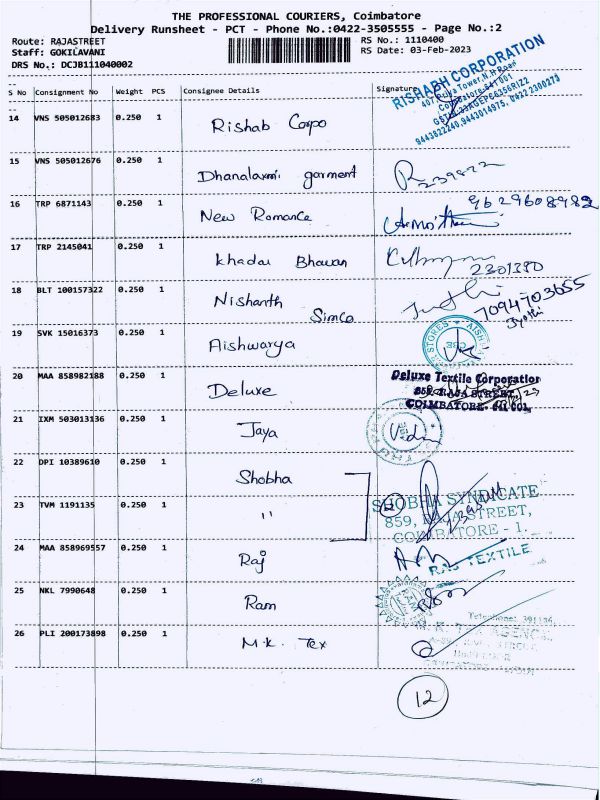 THE PROFESSIONAL COURIERS, Coimbatore
Delivery Runsheet - PCT - Phone No.:0422-3505555 - Page No.:2
Route: RAJASTREET
Staff: GOKILAVANI
DRS No.: DCJB111040002
RS No.: 1110400
RS Date: 03-Feb-2023
S No Consignment No Weight PCS Consignee Details Signature
RISHABH CORPORATION
9443822240, 9443014975, 0422 2300273
14 VNS 505012683 0.250 1 Rishab Corpo
15 VNS 505012676 0.250 1 Dhanalaxmi garment
16 TRP 6871143 0.250 1 New Romance 9629608982
17 TRP 2145041 0.250 1 Khadai Bhawan 2301380
18 BLT 100157322 0.250 1 Nishanth Simco Jyothi 7094703655
Jyothi
19 SVK 15016373 0.250 1 Aishwarya
STORES * AISH
CBE
20 MAA 858982188 0.250 1 Deluxe
Deluxe Textile Corporation
859, RAJA STREET,
COIMBATORE- 641 001.
21 IXM 503013136 0.250 1 Jaya
22 DPI 10389610 0.250 1 Shobha
23 TVM 1191135 0.250 1 "
SHOBHA SYNDICATE
859, RAJA STREET,
COIMBATORE - 1.
24 MAA 858969557 0.250 1 Raj
RAJ TEXTILE
25 NKL 7990648 0.250 1 Ram
26 PLI 200173898 0.250 1 M.K. Tex
12